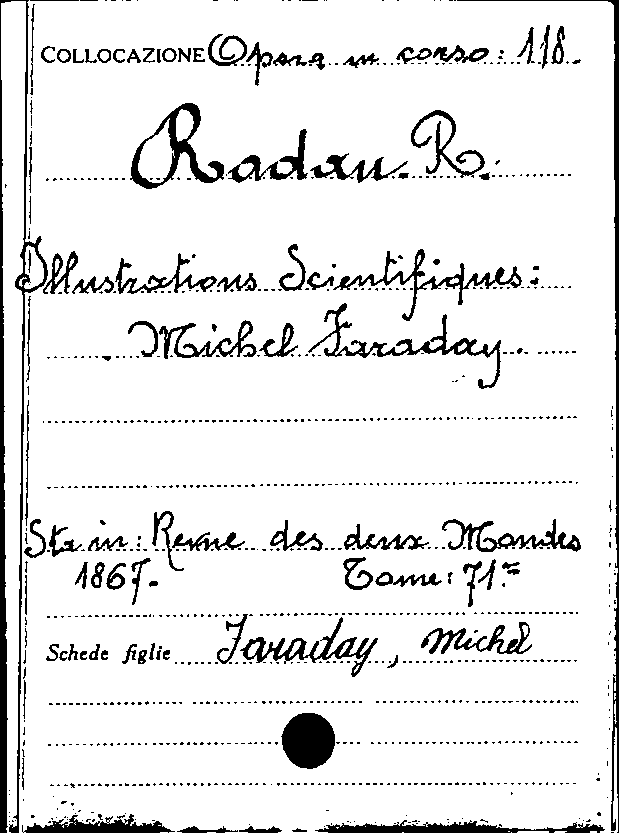 COLLOCAZIONE Opera in corso: 118.
Radau. R.
Illustrations Scientifiques:
Michel Faraday.
Sta in: Revue des deux Mondes
1867. Tome: 71.=
Schede figlie Faraday, Michel